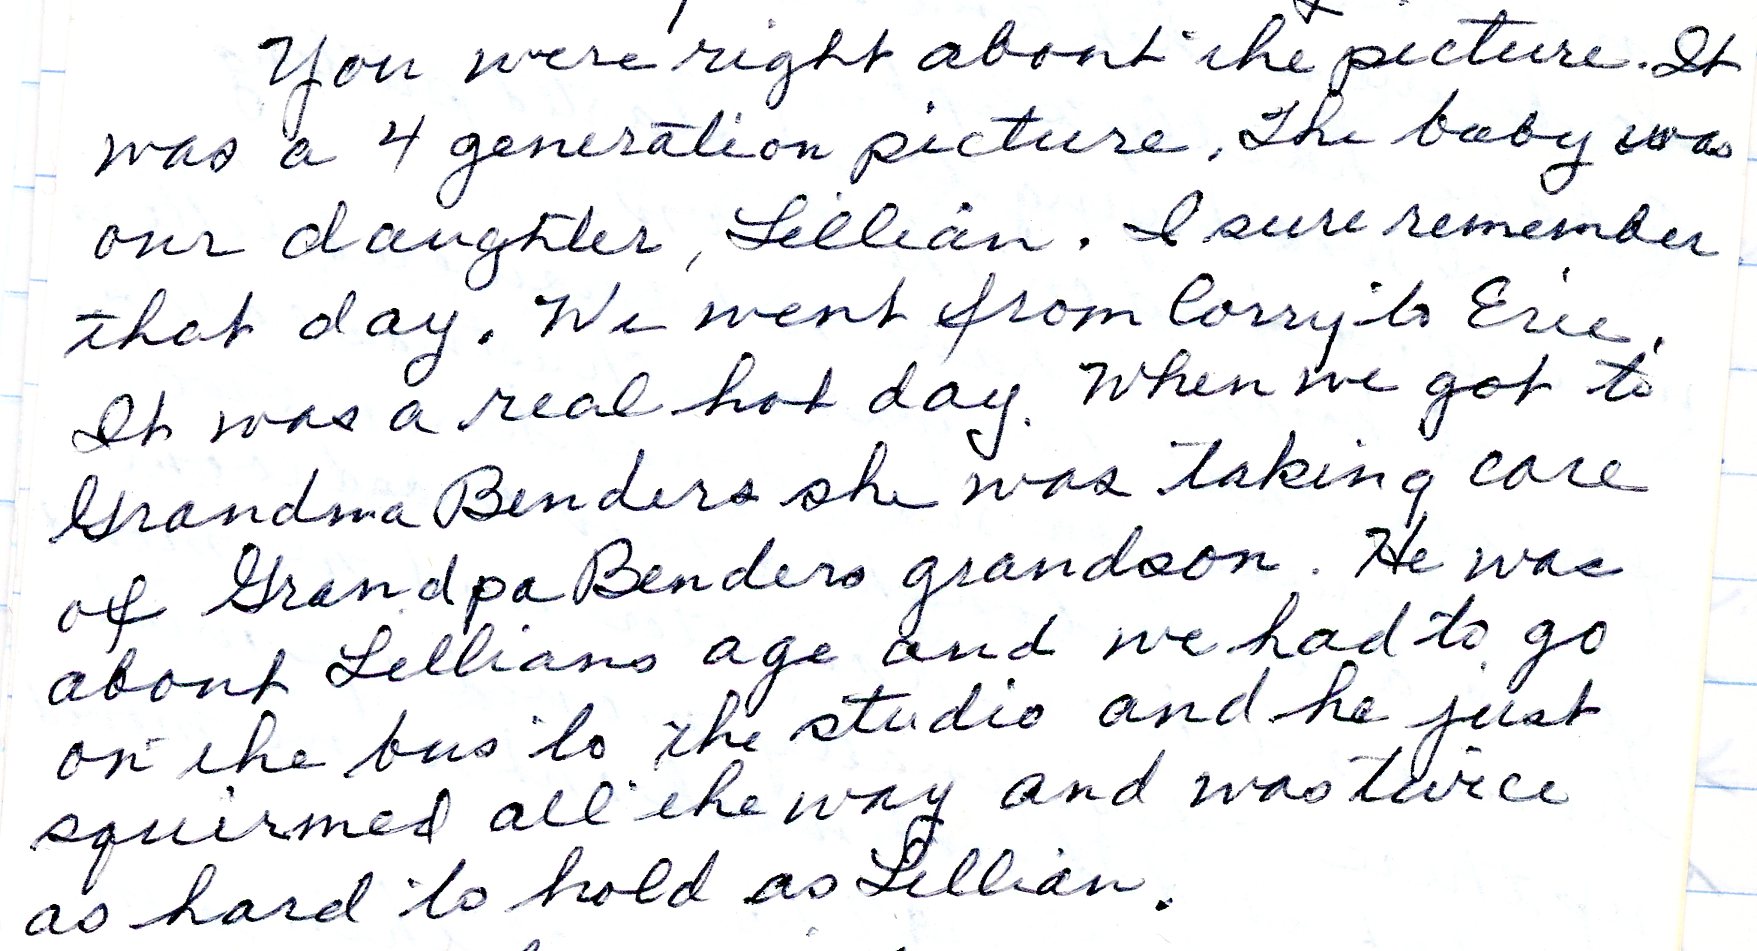 You were right about the picture. It
was a 4 generation picture. The baby was
our daughter, Lillian. I sure remember
that day. We went from Corry to Erie.
It was a real hot day. When we got to
Grandma Benders she was taking care
of Grandpa Benders grandson. He was
about Lillians age and we had to go
on the bus to the studio and he just
squirmed all the way and was twice
as hard to hold as Lillian.